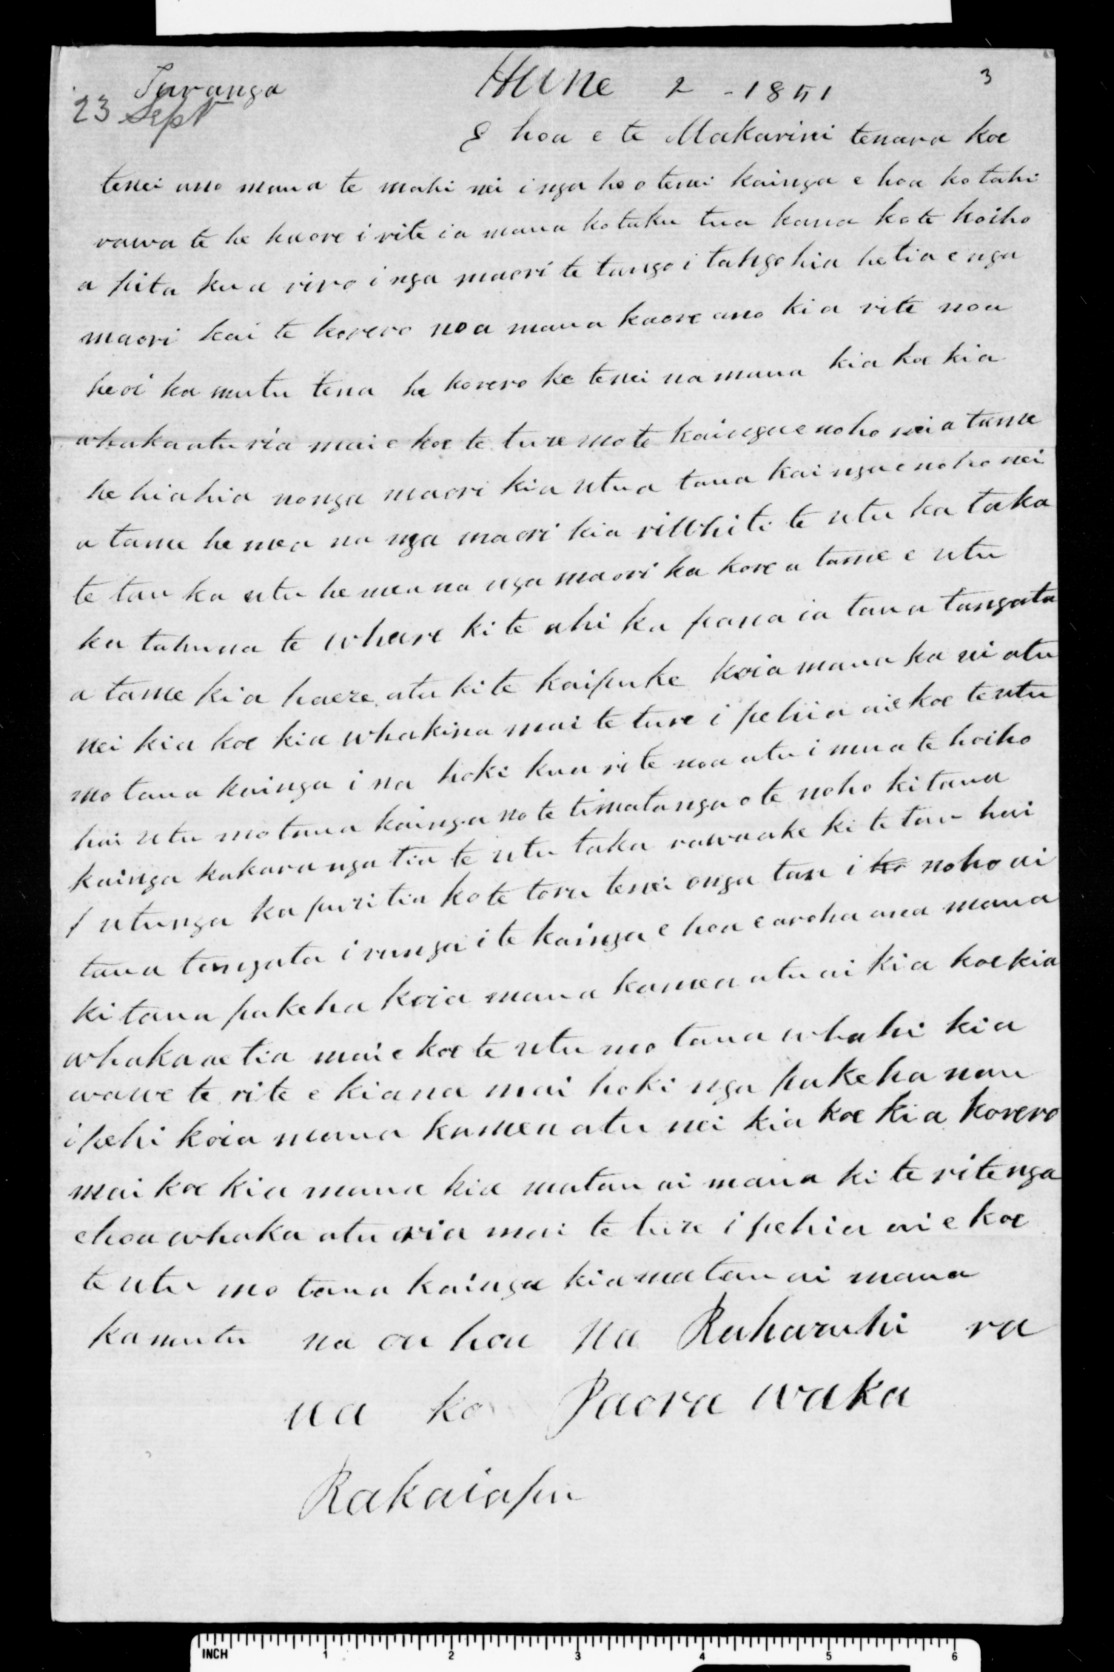 Turanga Hune 2 - 1851 3
23 Sept
E hoa e te Makarini tenara koe
tenei ano maua te mahi nei i nga he o tenei kainga e hoa ko tahi
rawa te he kaore i rite ia maua ko taku tua kana ko te hoiho
a pita kua riro i nga maori te tango i tahgohia he tia e nga
maori kai te korero noa maua kaore ano kia rite noa
heoi ka mutu tena he korero ke tenei na maua kia koe kia
whakaatu ria mai e koe te ture mo te kainga e noho nei a tame
he hiahia no nga maori kia utua tana kainga e noho nei
a tame he mea na nga maori kia ritWhiti te utu ka taka
te tau ka utu he mea na nga maori ka kore a tame e utu
ka tahuna te whare ki te ahi ka pana ia taua tangata
a tame kia haere atu ki te kaipuke koia maua ka mi atu
nei kia koe kia whakina mai te ture i pehia ai e koe te utu
mo taua kainga i na hoki kua rite noa atu i mua te hoiho
hai utu mo taua kainga no te timatanga o te noho ki taua
kainga kakaranga tia te utu taka rawa ake ki te tau hai
utunga ka puritia ko te toru tenei o nga tau i noho ai
taua tangata i runga i te kainga e hoa e aroha ana maua
ki taua pakeha koia maua ka mea atu ai kia koe kia
whakaaetia mai e koe te utu mo taua whahi kia
wawe te rite e kiana mai hoki nga pakeha nau
i pehi koia maua ka mea atu nei kia koe kia korero
mai koe kia maua kia matau ai maua ki te ritenga
e hoa whaka atu ria mai te ture i pehia ai e koe
te utu mo taua kainga kia matau ai maua
ka mutu na ou hoa Na Raharuhi ra
ua ko Paora waka
Rakaiapu